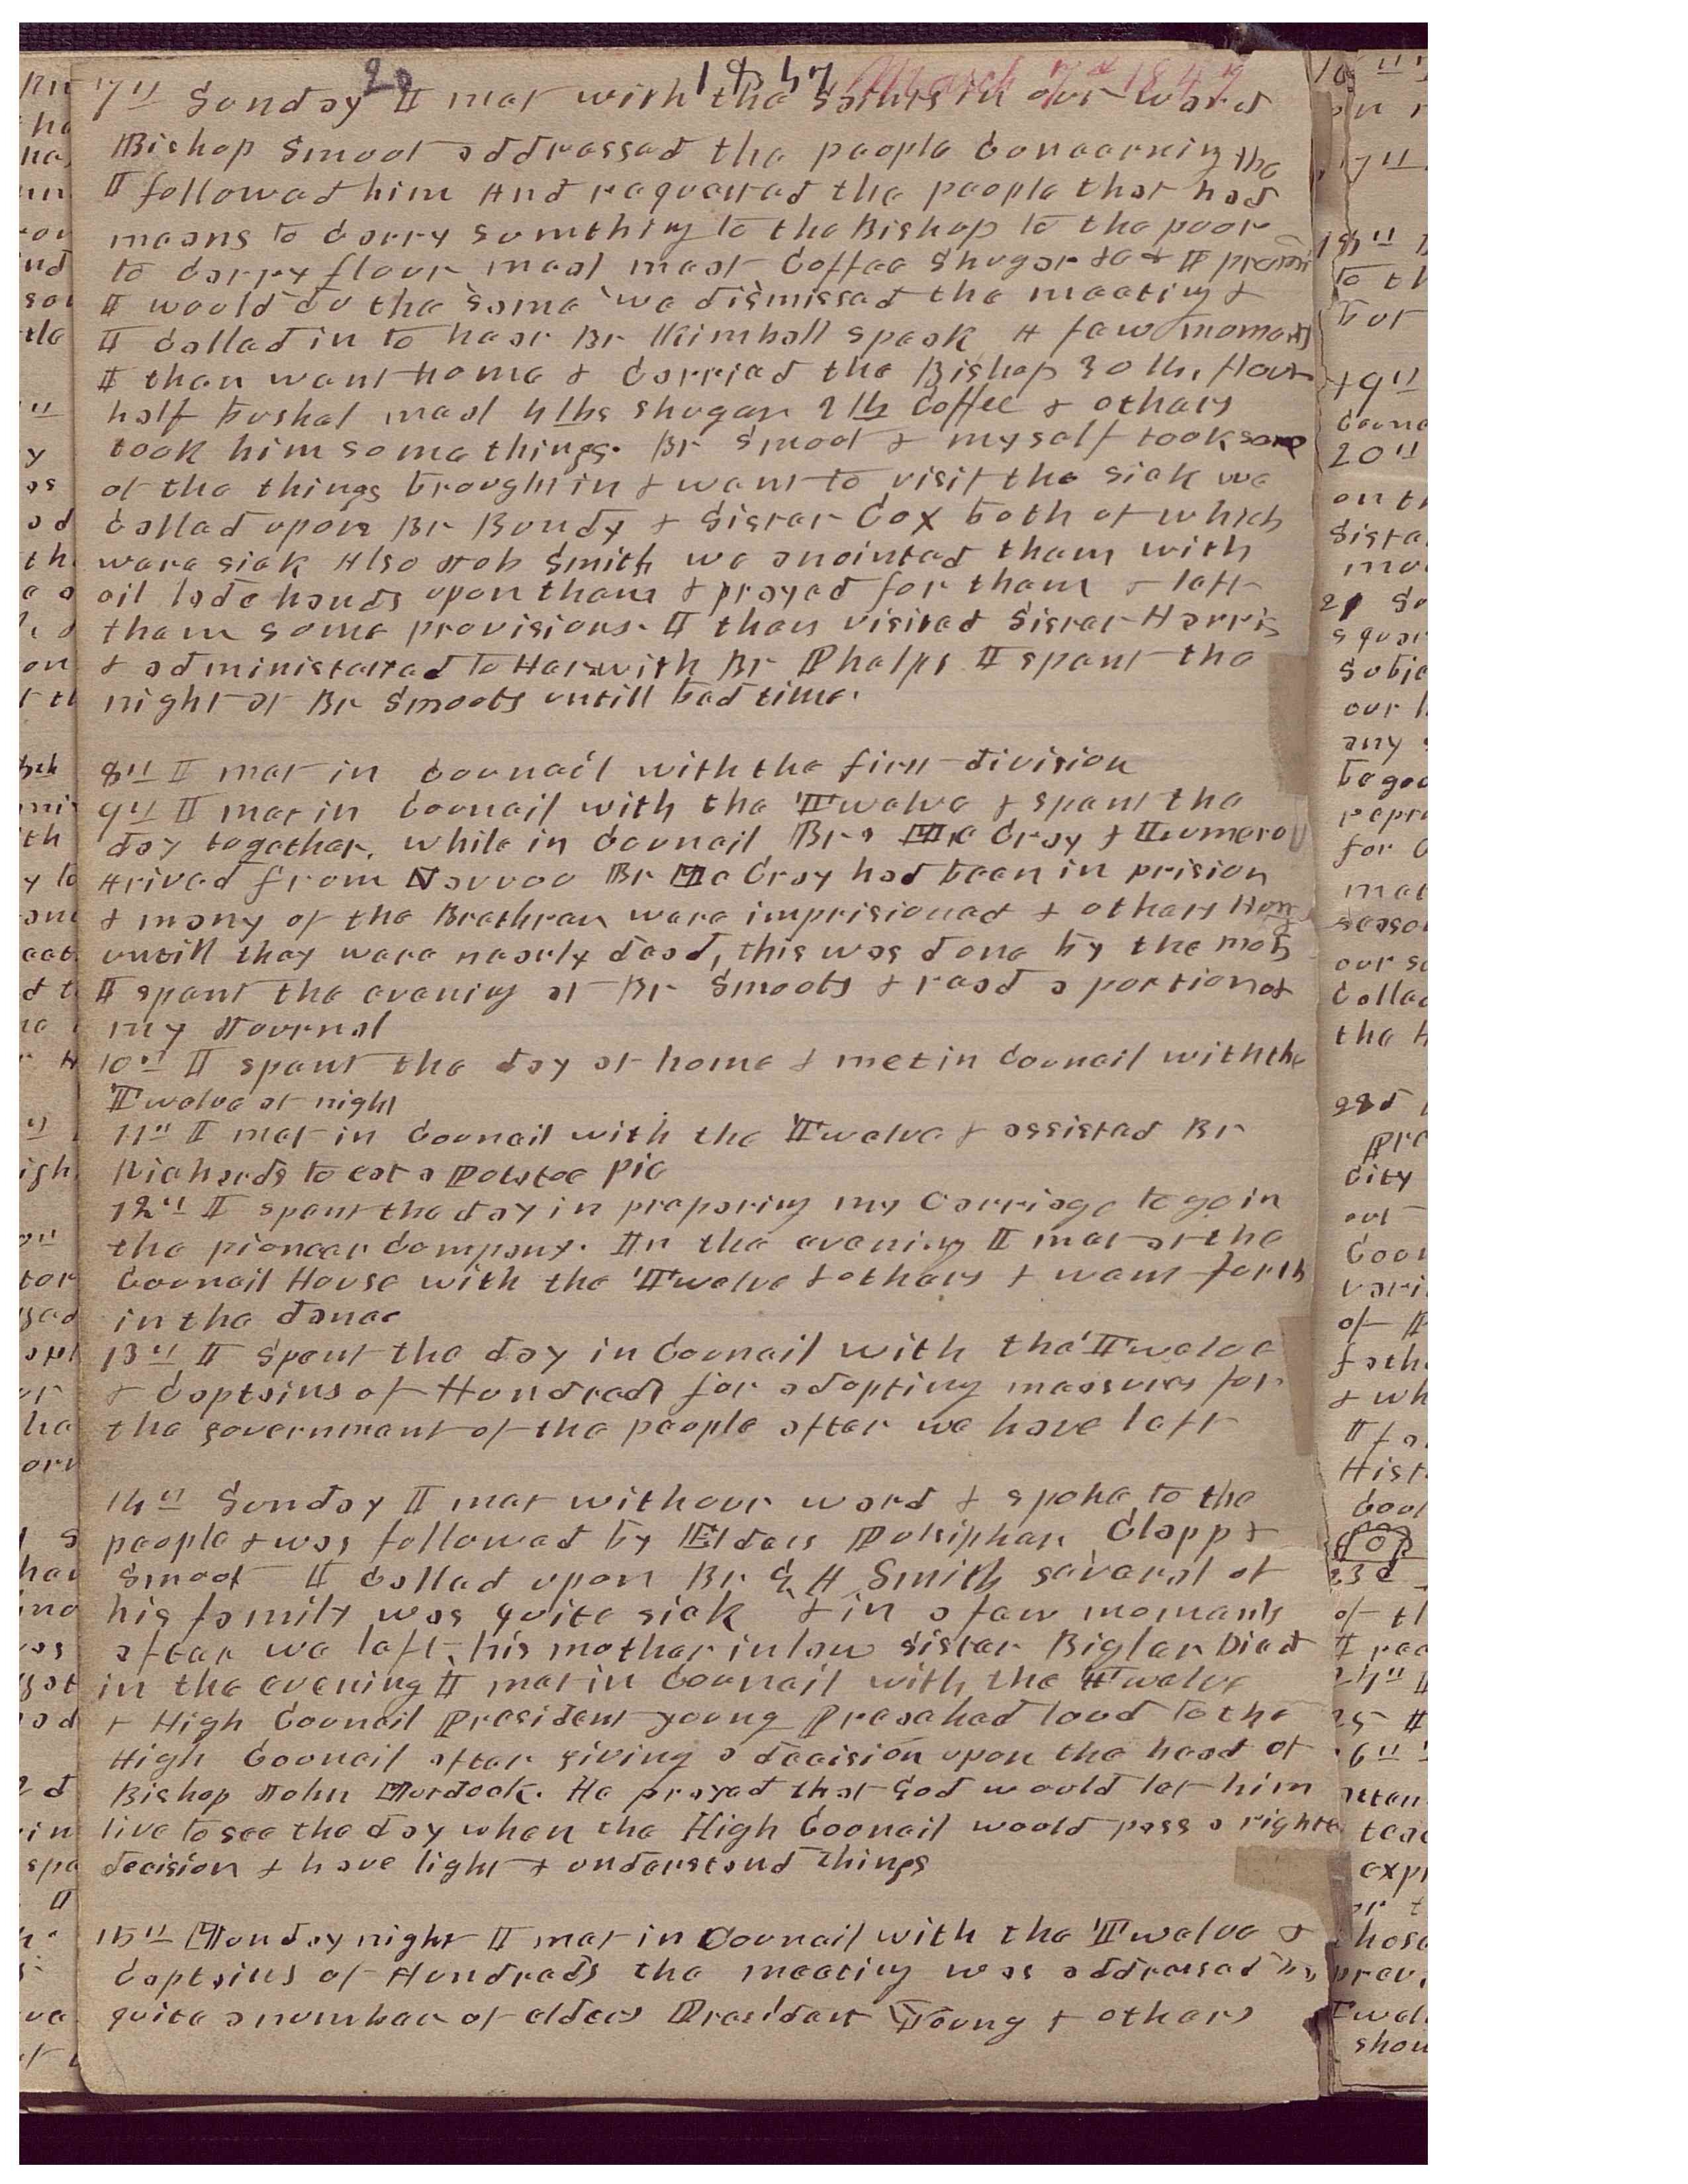 20 1847 March 7th 1847
7" Sunday I met with the Saints in our ward
Bishop Smoot addressed the people Concerning the
I followed him And requested the people that had
means to Carry sumthing to the Bishop to the poor
to Carry flour meal meat Coffee Shugar &c & I
I would do the same we dismissed the meeting &
I Called in to hear Br Kimball speak A few moments
I then went home & Carried the Bishop 30 lbs, flour
half bushel meal 4 lbs shugar 2 lb Coffee & others
took him some things. Br Smoot & myself took some
of the things brought in & went to visit the sick we
Called upon Br Bundy & Sister Cox both of which
were sick Also Job Smith we anointed them with
oil lade hands upon them & prayed for them & left
them some provisions. I then visited Sister Harris
& administerted to Her with Br Phelps I spent the
night at Br Smoots untill bed time.
8" I met in Councail with the first division
9" I met in Councail with the Twelve & spent the
day together. while in Councail Br
Arived from Navvoo Br had been in prision
& many of the Brethren were imprisioned & others Hung
untill they were nearly dead, this was done by the mob
I spent the evening at Br Smoots & read a portion of
my Journal
10" I spent the day at home & met in Councail with the
Twelve at night
11" I met in Councail with the Twelve & assisted Br
Richards to eat a Potatoe pie
12" I spent the day in preparing my Carriage to go in
the pioneer Company. In the evening I met at the
Councail House with the Twelve & others & went forth
in the dance
13" I Spent the day in Councail with the Twelve
& Captains of Hundreds for adopting measures for
the government of the people after we have left
14" Sunday I met with our ward & spoke to the
people & was followed by Elders Pulsipher Clapp &
Smoot I Called upon Br G. A Smith several of
his family was quite sick & in a few moments
after we left, his mother in law sister Bigler Died
in the evening I met in Councail with the Twelve
& High Councail President young Preached loud to the
High Councail after giving a decision upon the head of
Bishop John Murdock. He prayed that God would let him
live to see the day when the High Councail would pass a righte
decision & have light & understand things
15" Monday night I met in Councail with the Twelve &
Captains of Hundreds the meeting was addressed by
quite a number of elders President Young & others